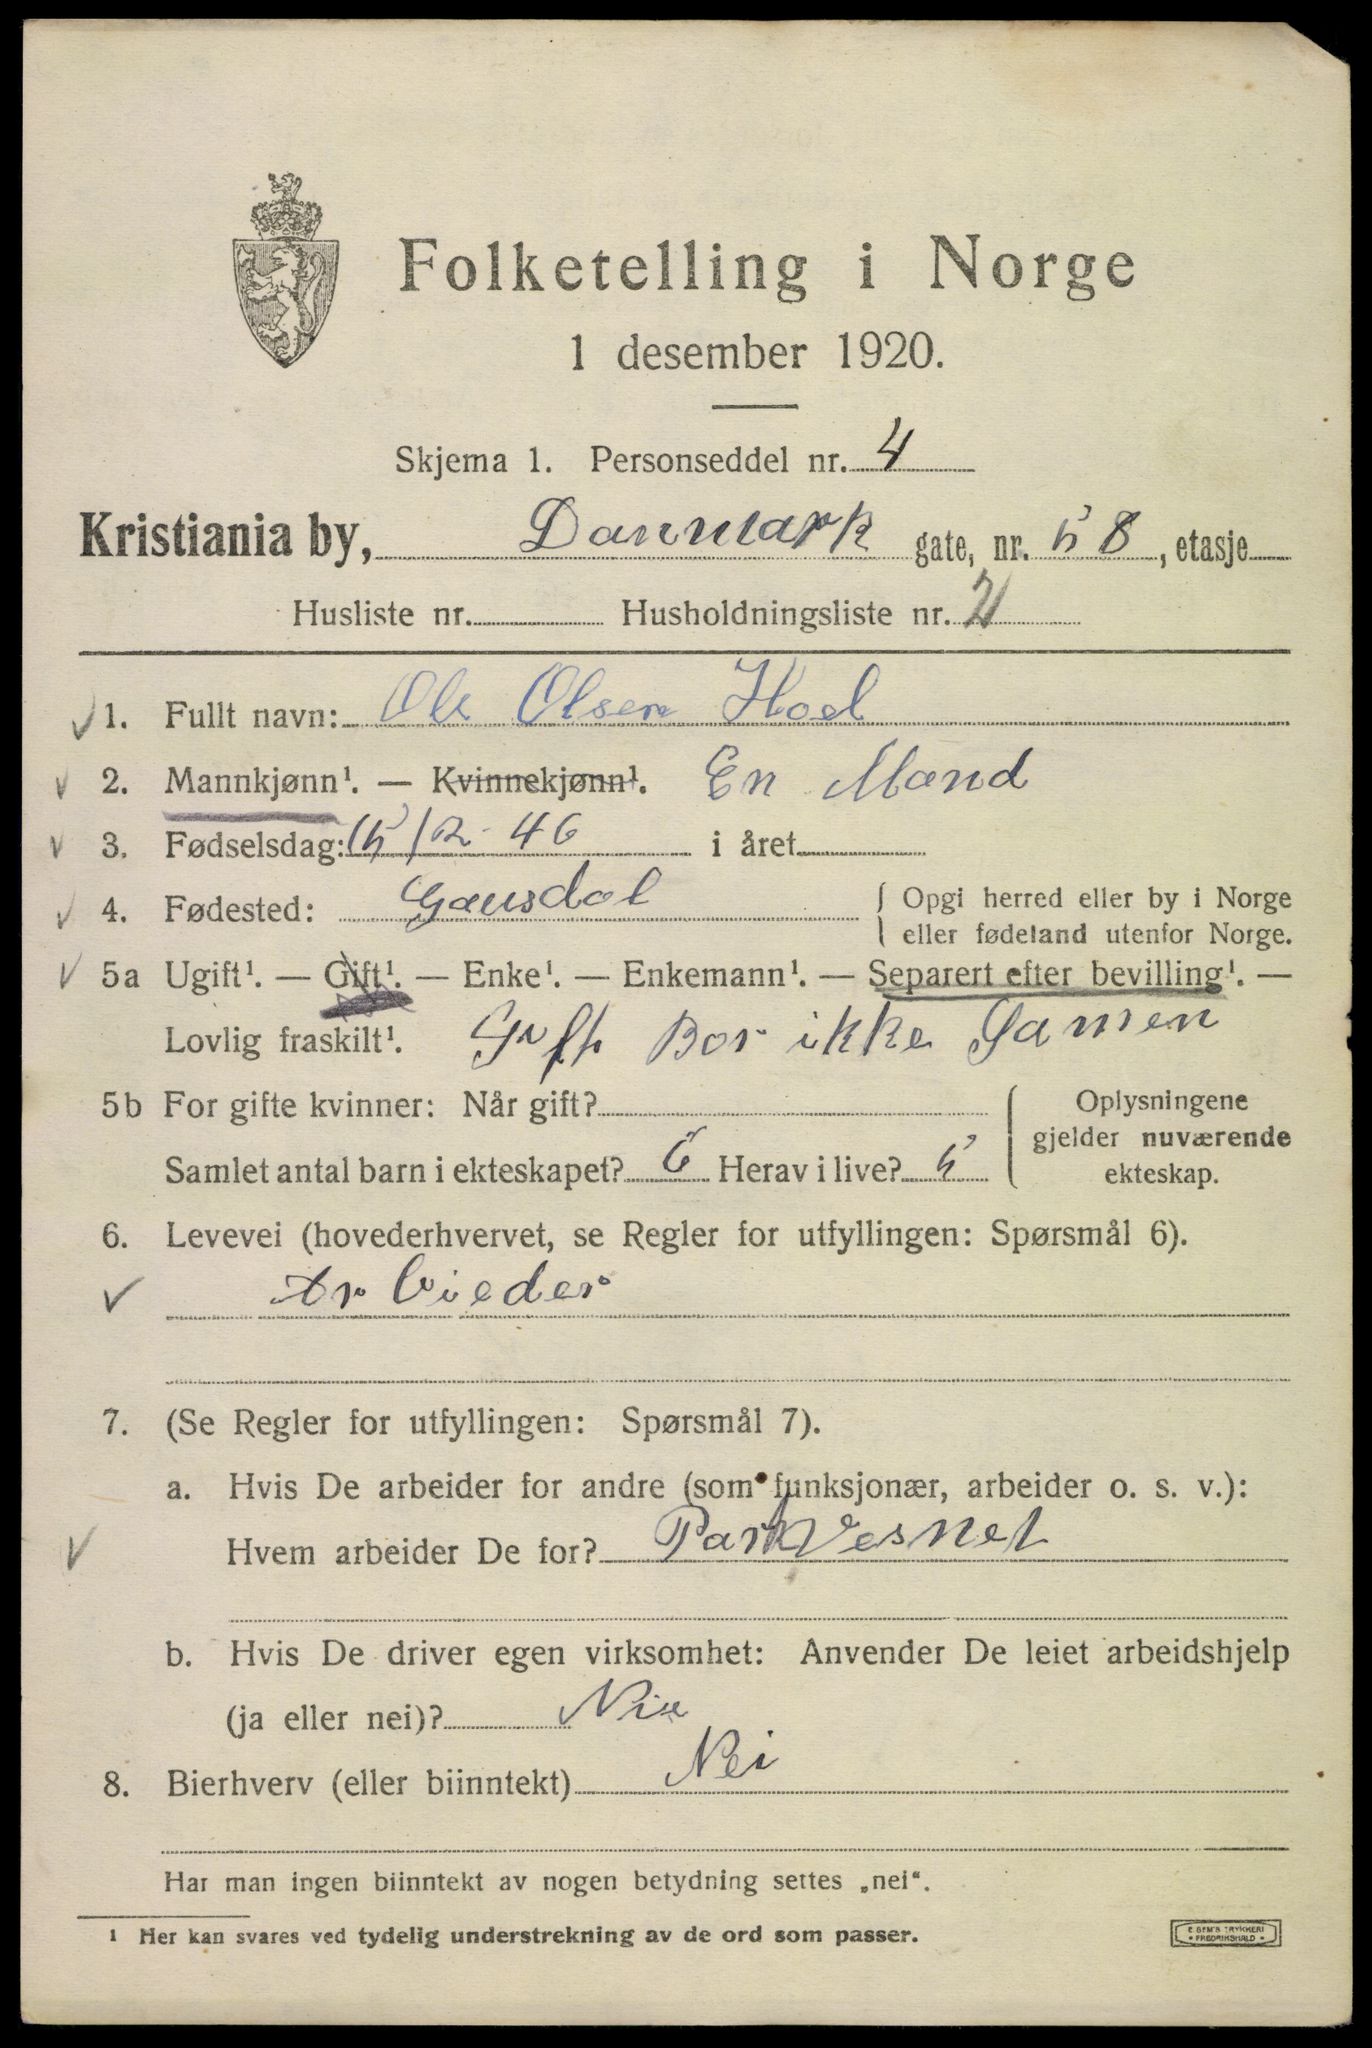 Folketelling i Norge
1 desember 1920.
Skjema 1. Personseddel nr. 4
Kristiania by, Danmark gate, nr. 58, etasje
Husliste nr. Husholdningsliste nr. 21
1. Fullt navn: Ole Olsen Hoel
2. Mannkjønn¹. — Kvinnekjønn¹. En Mand
3. Fødselsdag: 15/2-46 i året
4. Fødested: Gausdal { Opgi herred eller by i Norge
eller fødeland utenfor Norge.
5a Ugift¹. — Gift¹. — Enke¹. — Enkemann¹. — Separert efter bevilling¹. —
Lovlig fraskilt¹. Gift Bor ikke Samen
5b For gifte kvinner: Når gift? Oplysningene
gjelder nuværende
Samlet antal barn i ekteskapet? 6 Herav i live? 5 ekteskap.
6. Levevei (hovederhvervet, se Regler for utfyllingen: Spørsmål 6).
Arbieder
7. (Se Regler for utfyllingen: Spørsmål 7).
a. Hvis De arbeider for andre (som funksjonær, arbeider o. s. v.):
Hvem arbeider De for? Parkvesnet
b. Hvis De driver egen virksomhet: Anvender De leiet arbeidshjelp
(ja eller nei)? Nie
8. Bierhverv (eller biinntekt) Nei
Har man ingen biinntekt av nogen betydning settes „nei“.
¹ Her kan svares ved tydelig understrekning av de ord som passer.
E SEM'S TRYKKERI
• FREDRIKSHALD •